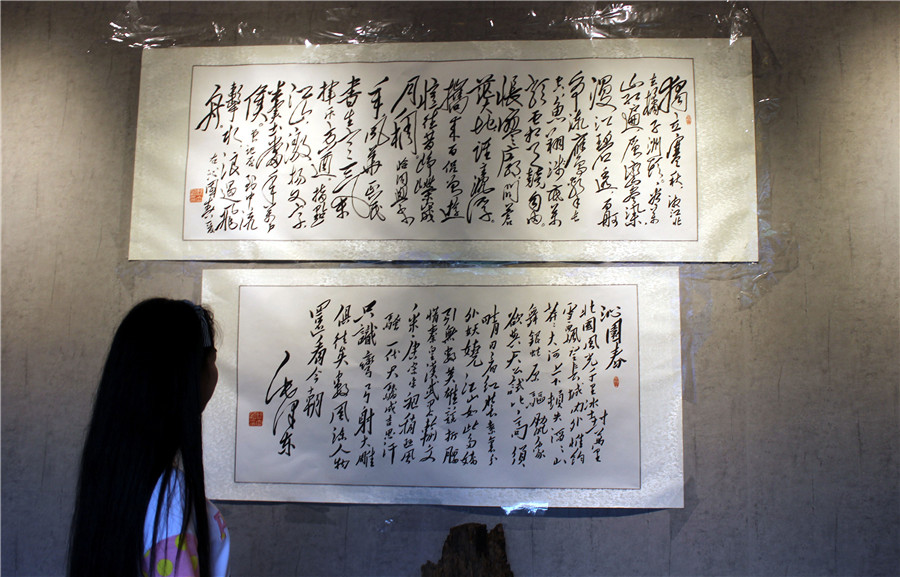 獨立寒秋湘江北
去橘子洲頭看萬
山紅遍層林盡染
漫江碧透百舸
爭流鷹擊長空
魚翔淺底萬類
霜天競自由
悵寥廓問蒼
茫大地誰主沉浮
攜來百侶曾遊
憶往昔崢嶸歲
月稠恰同學少
年風華正茂
書生意氣
揮斥方遒指點
江山激揚文字
糞土當年萬戶
侯曾記否到中流
擊水浪遏飛
舟
沁園春
北國風光千里冰封萬里
雪飄望長城內外惟餘
莽莽大河上下頓失滔滔山
舞銀蛇原驅臘象
欲與天公試比高須
晴日看紅妝素裹分
外妖嬈江山如此多嬌
引無數英雄競折腰
惜秦皇漢武略輸文
采唐宗宋祖稍遜風
騷一代天驕成吉思汗
只識彎弓射大雕
俱往矣數風流人物
還看今朝
毛澤東